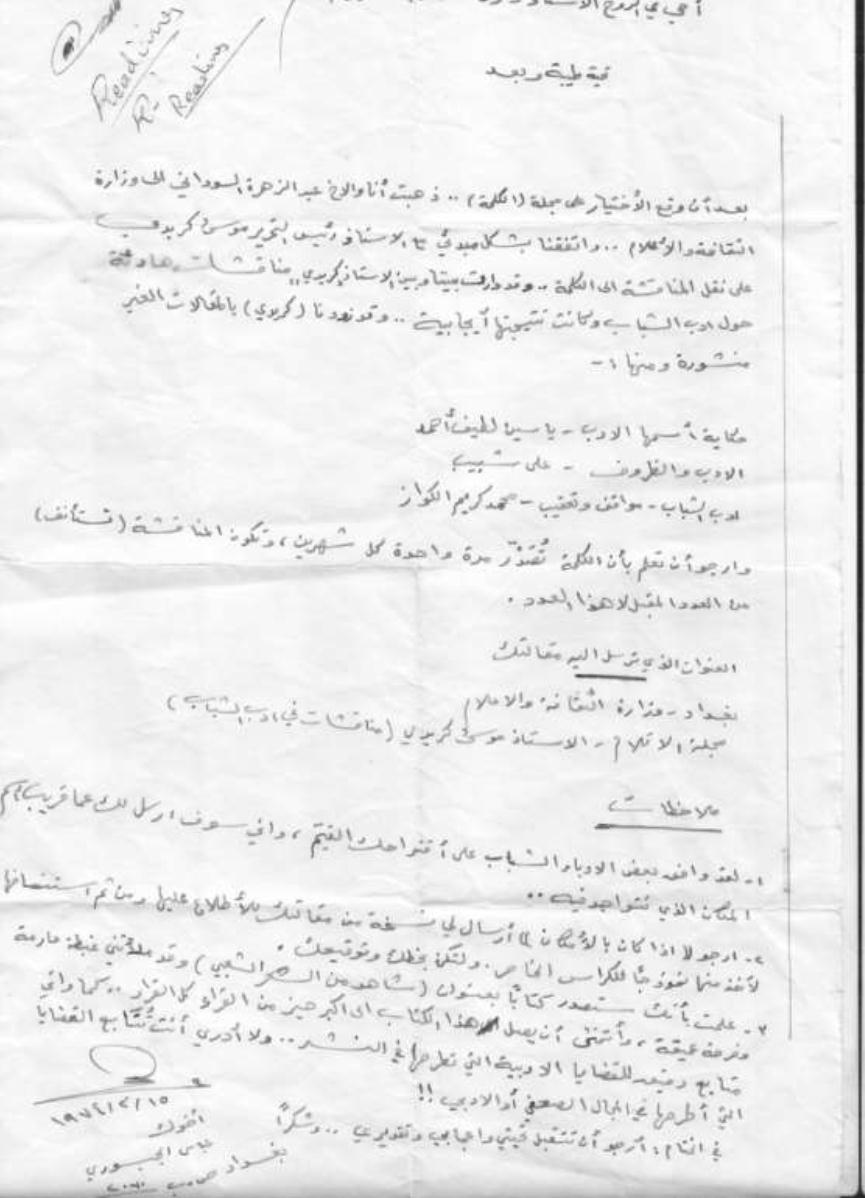 أخي في الروح الاستاذ
Readiiing
R-!
Reading
تحية طيبة وبعد
بعد أن وقع الأختيار على مجلة (الكلمة) .. ذهبت أنا والاخ عبد الزهرة السوداني الى وزارة
الثقافة والأعلام .. واتفقنا بشكل مبدئي مع الاستاذ رئيس التحرير موسى كريدي
على نقل المناقشة الى الكلمة .. وقد دارت بيننا وبين الاستاذ كريدي مناقشات هادئة
حول ادب الشباب وكانت نتيجتها أيجابية .. وقد زودنا (كريدي) بالمقالات الغير
منشورة ومنها :-
حكاية أسمها الادب - ياسين لطيف أحمد
الادب والظروف - علي شبيب
ادب الشباب - مواقف وتعقيب - محمد كريم الكواز
وارجو أن تعلم بأن الكلمة تصدر مرة واحدة كل شهرين ، وتكون المناقشة (تستأنف)
من العدد المقبل لا هذا العدد .
العنوان الذي ترسل اليه مقالتك
بغداد - وزارة الثقافة والاعلام
مجلة الاقلام - الاستاذ موسى كريدي (مناقشات في ادب الشباب)
ملاحظات
١- لقد وافق بعض الادباء الشباب على أقتراحك القيم ، واني سوف ارسل لك عما قريب
المكان الذي تتواجد فيه ..
٢- ارجو اذا كان بالأمكان أرسال لي نسخة من مقالتك للأطلاع عليها ومن ثم استنساخها
لأخذ منها نموذجاً للكراس الخاص . ولتكن بخطك وتوقيعك .
٣- علمت بأنك ستصدر كتاباً بعنوان (شاهد من الشعر الشعبي) وقد ملأتني غبطة عارمة
وفرحة عميقة ، وأتمنى أن يصل هذا الكتاب الى اكبر حيز من القراء كل القراء .. كما واني
متابع دقيق للقضايا الادبية التي تطرحها في النشر .. ولا أدري أأنت تتابع القضايا
التي أطرحها في المجال الصحفي أو الادبي !!
في الختام : أرجو أن تتقبل تحيتي واعجابي وتقديري .. وشكراً
أخوك
الجبوري
بغداد